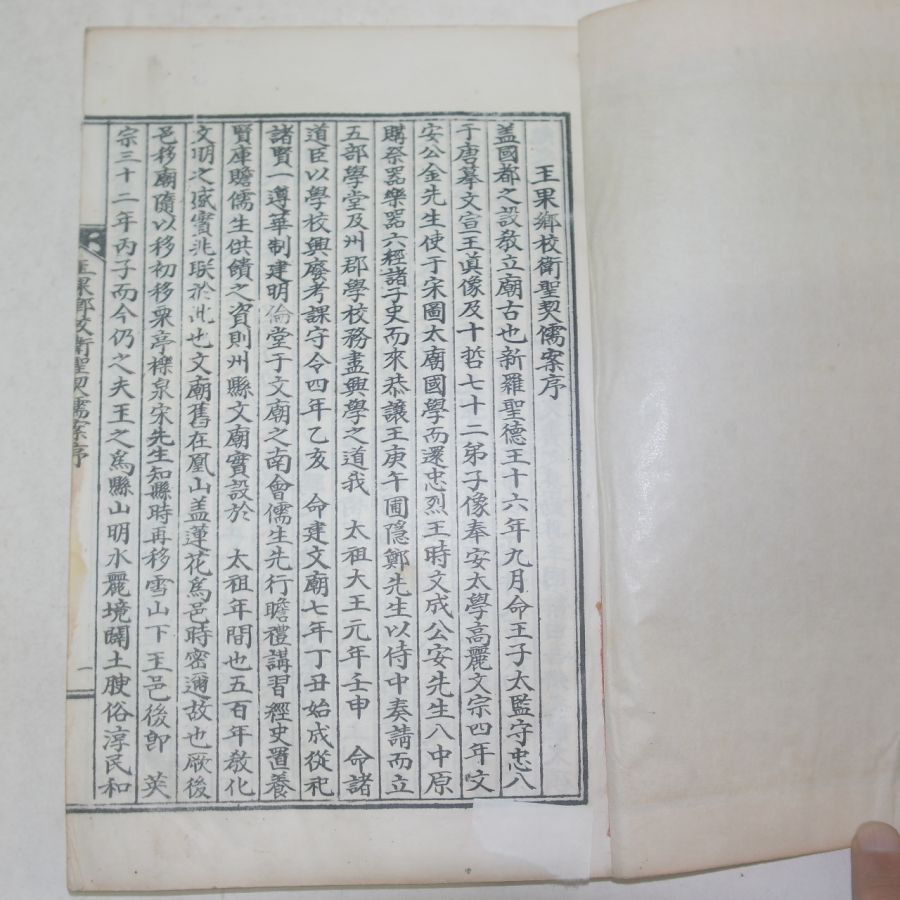 王果鄕校衛聖契儒案序
盖國都之設敎立廟古也新羅聖德王十六年九月命王子太監守忠入
于唐摹文宣王眞像及十哲七十二弟子像奉安太學高麗文宗四年文
安公金先生使于宋圖太廟國學而還忠烈王時文成公安先生入中原
購祭器樂器六經諸子史而來恭讓王庚午圃隱鄭先生以侍中奏請而立
五部學堂及州郡學校務盡興學之道我 太祖大王元年壬申 命諸
道臣以學校興廢考課守令四年乙亥 命建文廟七年丁丑始成從祀
諸賢一遵華制建明倫堂于文廟之南會儒生先行瞻禮講習經史置養
賢庫贍儒生供饋之資則州縣文廟實設於 太祖年間也五百年敎化
文明之盛實兆朕於此也文廟舊在凰山盖蓮花爲邑時密邇故也厥後
邑移廟隨以移初移衆亭櫟泉宋先生知縣時再移雪山下王邑後卽 英
宗三十二年丙子而今仍之夫王之爲縣山明水麗境闢土腴俗淳民和
王果鄕校衛聖契儒案序
一